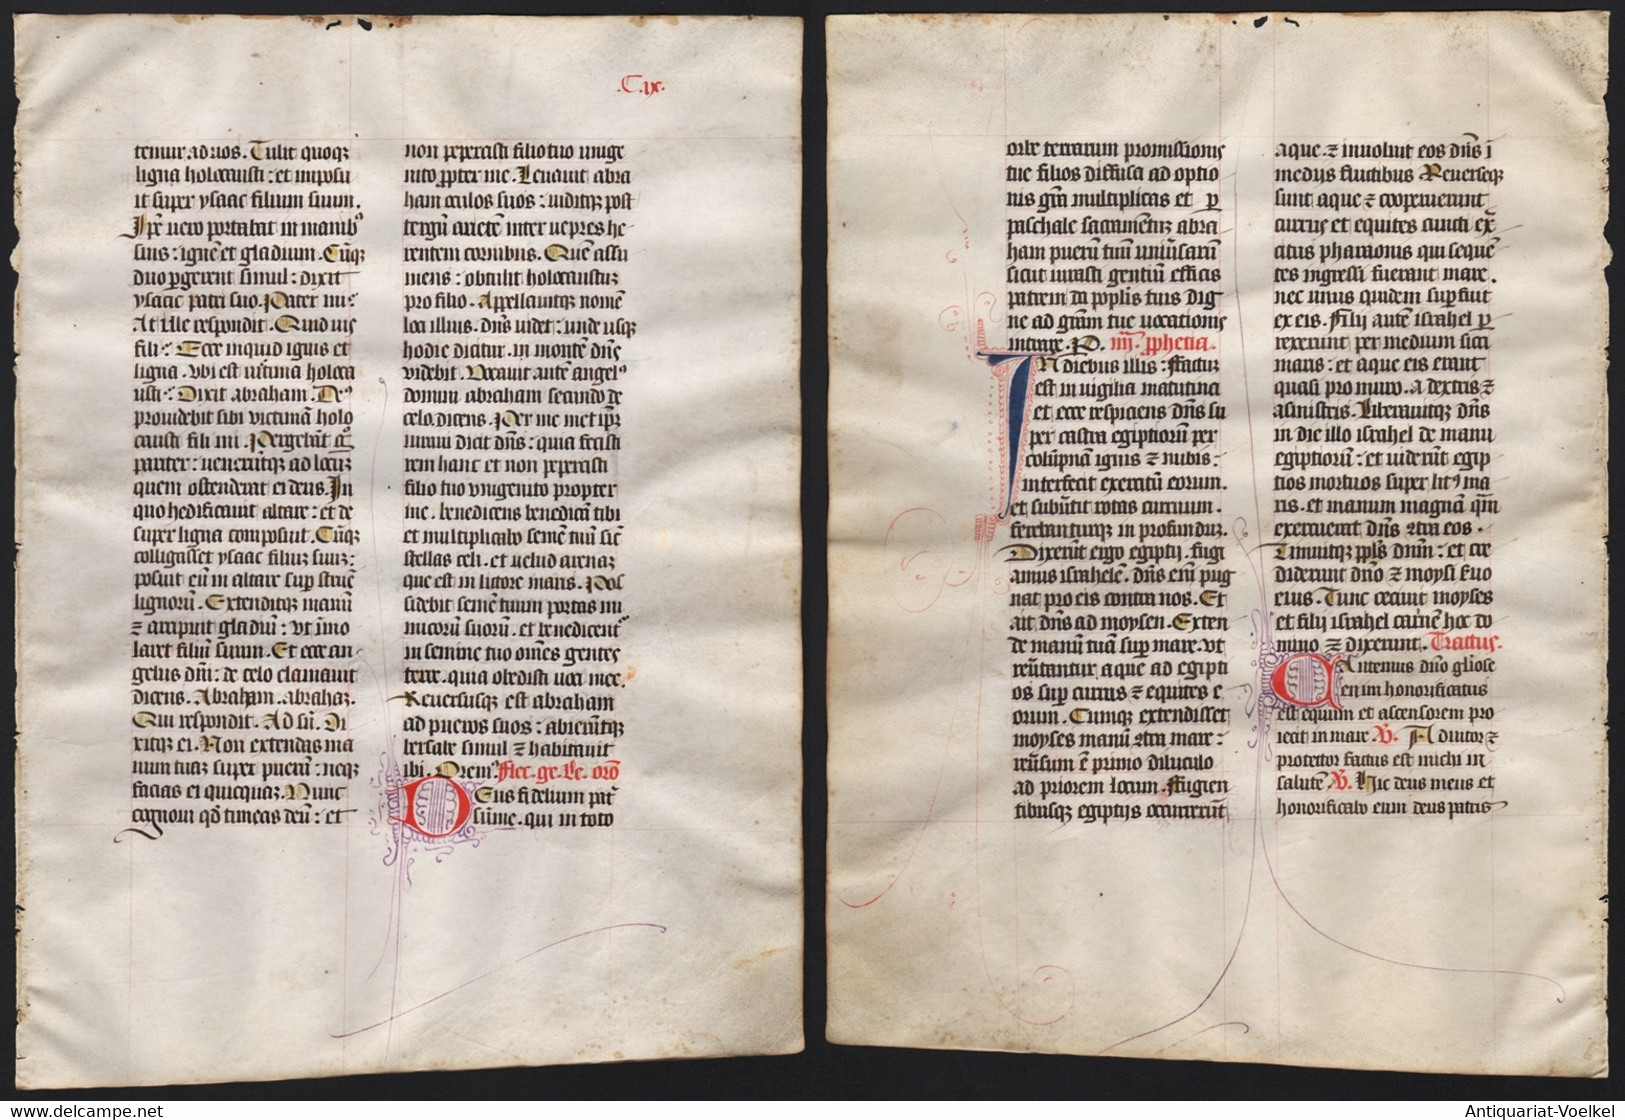 .C.ix.
temur ad uos. Tulit quoqꝫ
ligna holocausti : et imposu
it super ysaac filium suum.
Ip̄e uero portabat in manibꝰ
suis : ignē et gladium. Cūqꝫ
duo ꝑgerent simul : dixit
ysaac patri suo. Pater mi.
At ille respondit. Quid uis
fili. Ecce inquid ignis et
ligna. vbi est uictima holoca
usti. Dixit abraham. Deꝰ
prouidebit sibi victimā holo
causti fili mi. Pergebāt gͦ
pariter : uenerūtqꝫ ad locuꝫ
quem ostenderat ei deus. In
quo hedificauit altare : et de
super ligna composuit. Cūqꝫ
colligasset ysaac filiuꝫ suuꝫ :
posuit eū in altare sup̄ struē
lignorū. Extenditqꝫ manū
⁊ arripuit gladiū : vt īmo
laret filiū suum. Et ecce an
gelus dn̄i : de celo clamauit
dicens. Abraham. abrahaꝫ.
Qui respondit. Ad sū. Di
xitqꝫ ei. Non extendas ma
num tuaꝫ super puerū : neqꝫ
facias ei quicquaꝫ. Nunc
cognoui qď timeas deū : et
non pepercisti filio tuo unige
nito ꝓpter me. Leuauit abra
ham oculos suos : uiditqꝫ post
tergū arietē inter uepres he
rentem cornibus. Quē assu
mens : obtulit holocaustuꝫ
pro filio. Appellauitqꝫ nomē
loci illius. dn̄s videt : unde usqꝫ
hodie dicitur. in monte dn̄s
videbit. Vocauit autē angelꝰ
domini abraham secundo de
celo. dicens. Per me met ip̄m
iuraui dicit dn̄s : quia fecisti
rem hanc et non pepercisti
filio tuo vnigenito propter
me. benedicens benedicā tibi
et multiplicabo semē tuū sic̄
stellas celi. et uelud arenaꝫ
que est in litore maris. Pos
sidebit semē tuum portas ini
micorū suorū. et benedicentꝰ
in semine tuo om̄es gentes
terre. quia obedisti uoci mee.
Reuersusqꝫ est abraham
ad pueros suos : abierūtqꝫ
bersabe simul ⁊ habitauit
ibi. Oremꝰ Flec. ge. Le. orō
Deus fidelium patr̄
sūme. qui in toto
orbe terrarum promissionis
tue filios diffusa ad optio
nis grā multiplicas et ꝑ
paschale sacramentuꝫ abra
ham puerū tuū uniūsarū
sicut iurasti gentiū efficis
patrem da popl̄is tuis dig
ne ad grām tue uocationis
intrare. P. iiij ꝓphetia.
In diebus illis : ffactuꝫ
est in uigilia matutina
et ecce respiciens dn̄s su
per castra egiptiorū per
colūpnā ignis ⁊ nubis :
interfecit exercitū eorum.
et subūtit rotas curruum.
ferebanturqꝫ in profunduꝫ.
Dixerūt ergo egiptij. fugi
amus israhelē. dn̄s eni pug
nat pro eis contra nos. Et
ait dn̄s ad moysen. Exten
de manū tuā sup̄ mare. vt
reūtantur aque ad egipti
os sup̄ currus ⁊ equites e
orum. Cumqꝫ extendisset
moyses manū ꝯtra mare :
reūsum ē primo diluculo
ad priorem locum. ffugien
tibusqꝫ egiptijs occurrerūt
aque. ⁊ inuoluit eos dn̄s ī
medijs fluctibus Reuerseqꝫ
sunt aque ⁊ cooperuerunt
currus et equites cuncti ex̄
citus pharaonis qui sequē
tes ingressi fuerant mare.
nec unus quidem sup̄ fuit
ex eis. Filij autē israhel ꝑ
rexerunt per medium sicci
maris : et aque eis erant
quasi pro muro. a dextris ⁊
asinistris. Liberauitqꝫ dn̄s
in die illo israhel de manu
egiptiorū : et uiderūt egip
tios mortuos super litꝰ ma
ris. et manum magnā quā
exercuerat dn̄s ꝯtra eos.
Timuitqꝫ ppl̄s dnm̄ : et cre
diderunt dn̄o ⁊ moysi ẜuo
eius. Tunc cecinit moyses
et filij israhel carmē hoc do
mino ⁊ dixerunt. Tractus.
Cantemus dn̄o gl̄iose
enim honorificatus
est equum et ascensorem pro
iecit in mare V. Adiutor ⁊
protector factus est michi in
salutē V. Hic deus meus et
honorificabo eum deus patris
Antiquariat-Voelkel